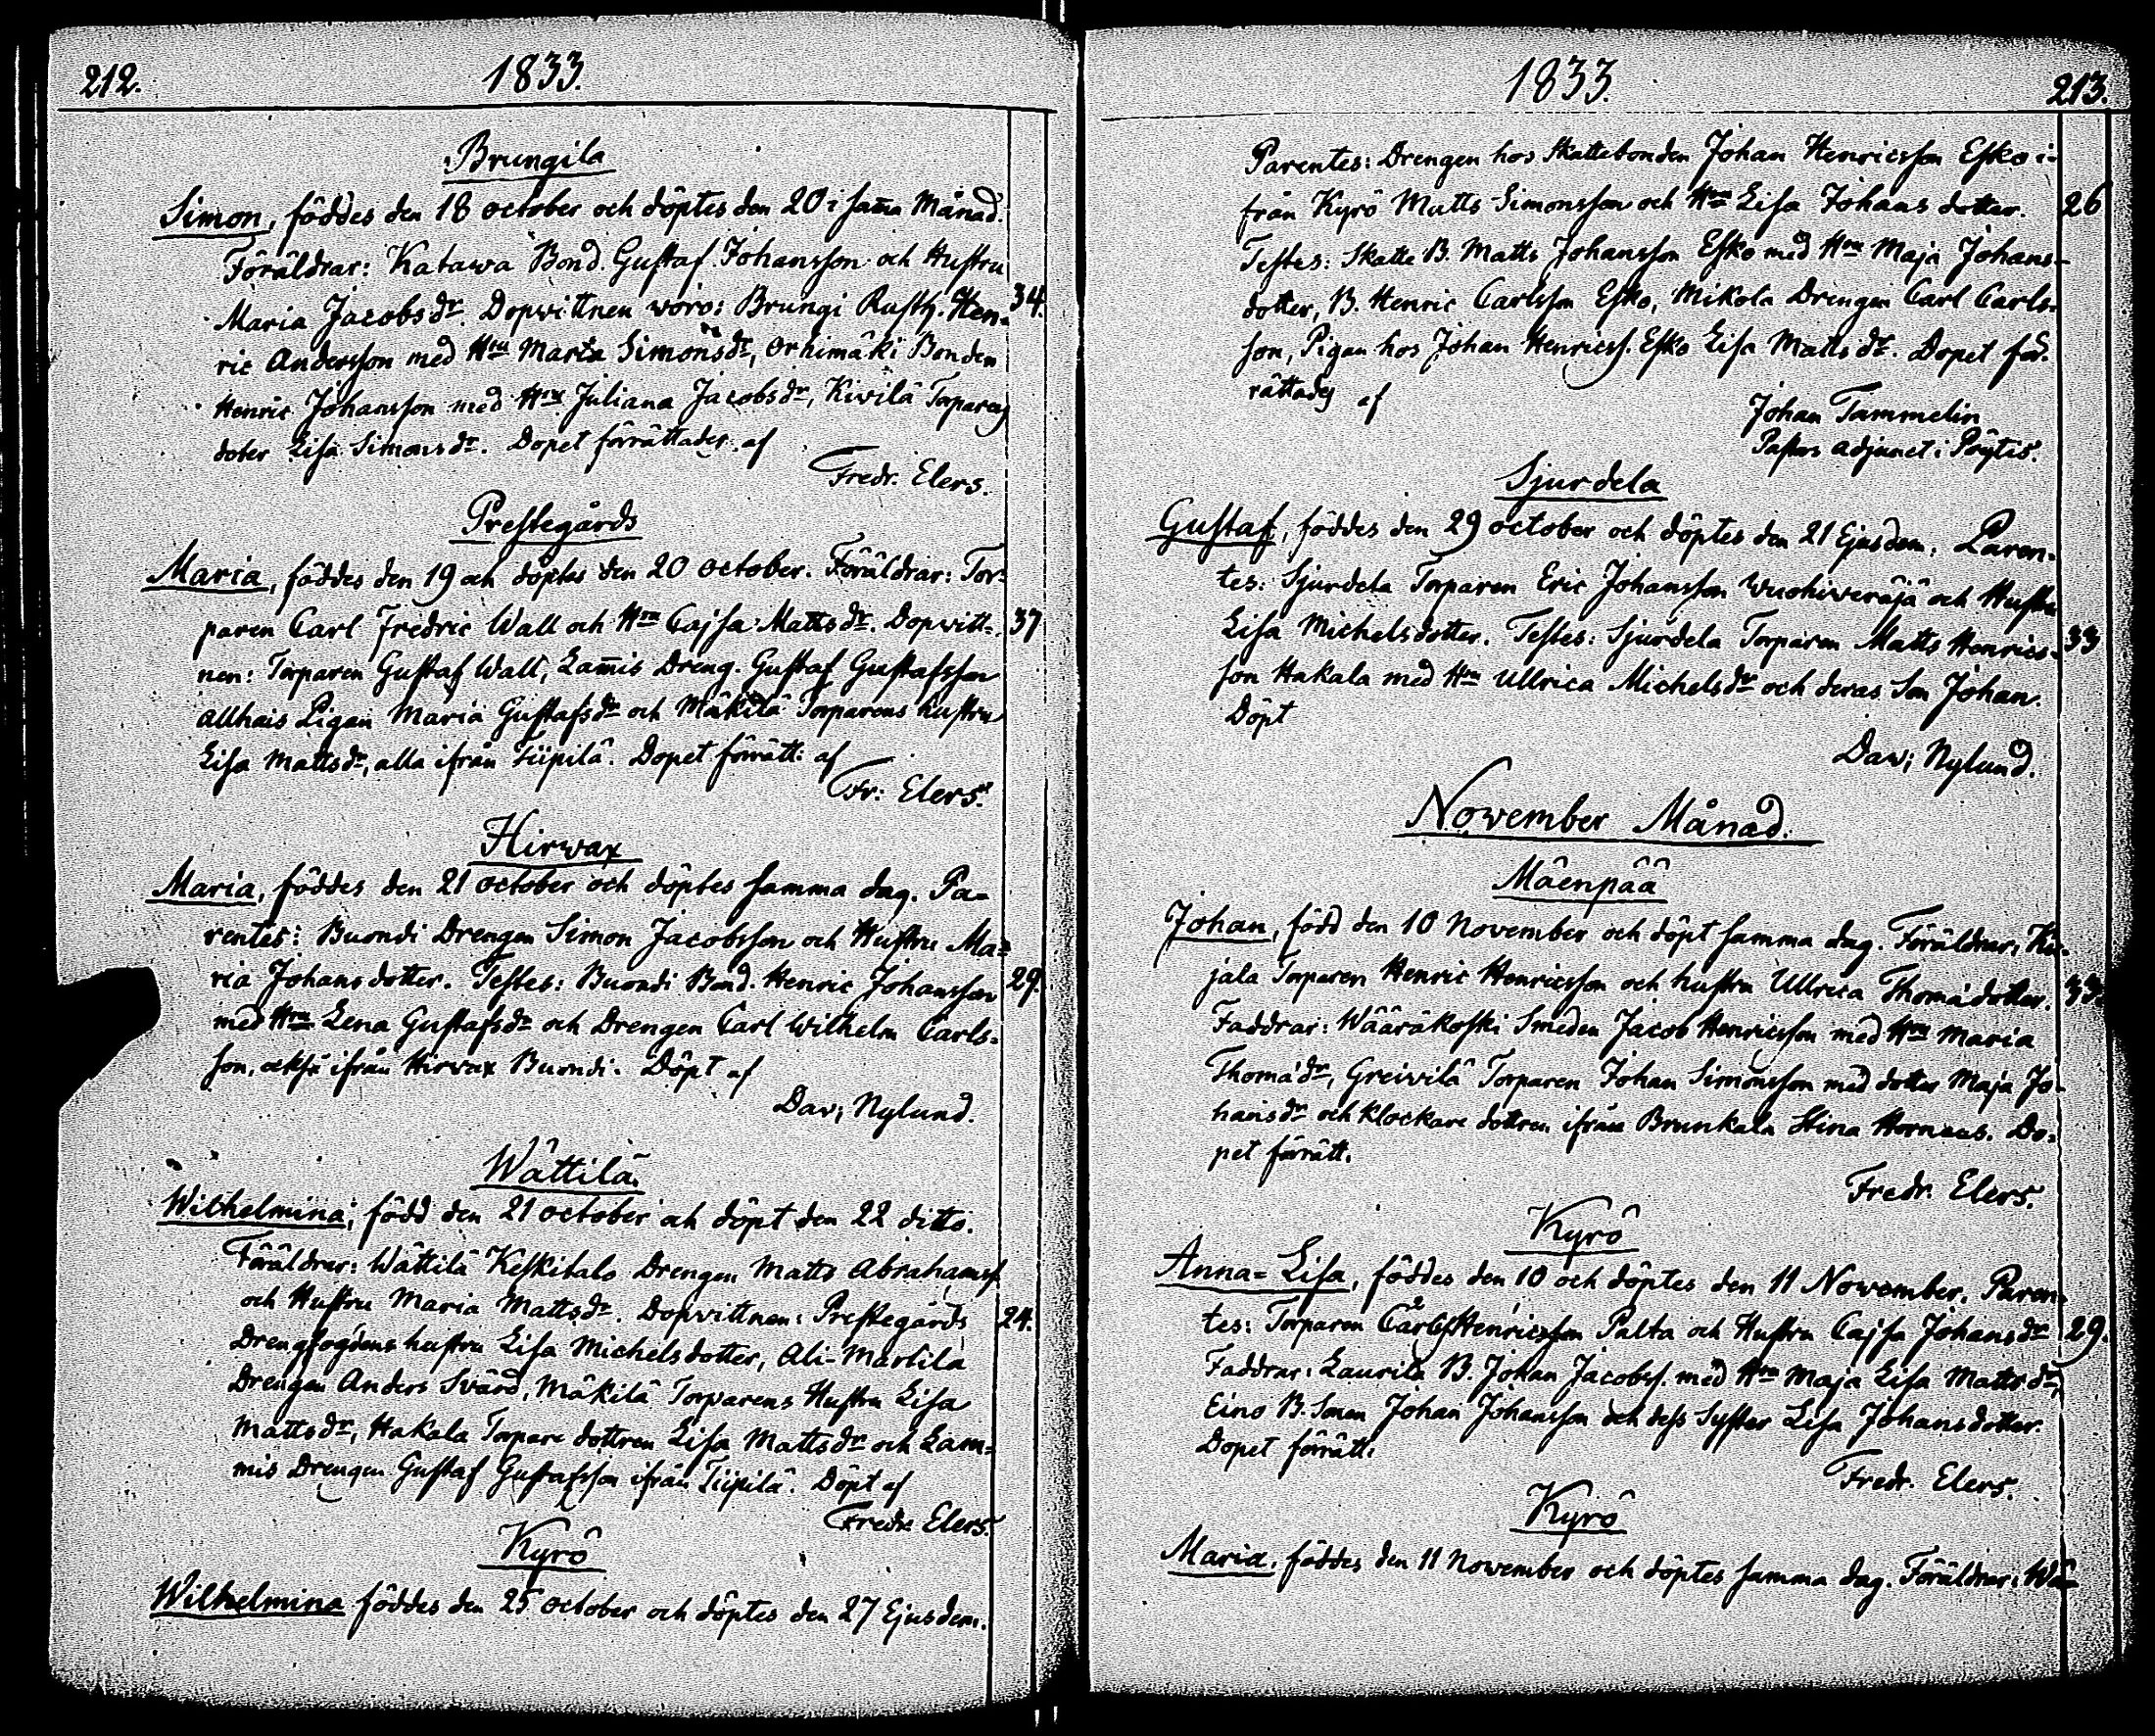 212. 1833.
Brungila
Simon, föddes den 18 october och döptes den 20 i sam̄a Månad.
Föräldrar: Katawa Bond. Gustaf Johansson och Hustru
Maria Jacobs dr. Dopvittnen woro: Brungi Rusth. Hen- 34.
ric Andersson med Hru Maria Simons dr, Orhimäki Bonden
Henric Johansson med Hru Juliana Jacobs dr, Kiwilä Torparens
doter Lisa Simons dr. Dopet förrättades af
Fredr. Elers.
Prestegårds
Maria, föddes den 19 och döptes den 20 October. Föräldrar: Tor-
paren Carl Fredric Wall och Hru Cajsa Matts dr. Dopvitt- 37
nen: Torparen Gustaf Wall, Lam̄is Dreng. Gustaf Gustafsson
Allhais Pigan Maria Gustafs dr och Mäkilä Torparens hustru
Lisa Matts dr, alla ifrån Tiipilä. Dopet förrätt: af
Fr: Elers.
Hirwax
Maria, föddes den 21 October och döptes samma dag. Pa-
rentes: Buondi Drengen Simon Jacobsson och Hustru Ma-
ria Johans dotter. Testes: Buondi Bond. Henric Johansson 29.
med Hru Lena Gustafs dr och Drengen Carl Wilhelm Carls-
son, också ifrån Hirwax Buondi. Döpt af
Dav; Nylund.
Wättilä.
Wilhelmina, född den 21 october och döpt den 22 ditto.
Föräldrar: Wättilä Keskitalo Drengen Matts Abrahamss.
och Hustru Maria Matts dr. Dopvittnen: Prestegårds 24.
Drengfogdens hustru Lisa Michels dotter, Ali-Martila
Drengen Anders Svärd, Mäkilä Torparens Hustru Lisa
Matts dr, Hakala Torpare dottren Lisa Matts dr och Lam-
mis Drengen Gustaf Gustafsson ifrån Tiipilä. Döpt af
Fredr. Elers.
Kyrö
Wilhelmina föddes den 25 october och döptes den 27 Ejusdem.
1833. 213.
Parentes: Drengen hos Skattebonden Johan Henricsson Esko i-
från Kyrö Matts Simonsson och Hru Lisa Johans dotter. 26
Testes: Skatte B. Matts Johansson Esko med Hru Maja Johans-
dotter, B. Henric Carlsson Esko, Mikola Drengen Carl Carls-
son, Pigan hos Johan Henricss. Esko Lisa Matts dr. Dopet för-
rättades af
Johan Tammelin
Pastors adjunct i Pöytis.
Sjurdela
Gustaf, föddes den 29 october och döptes den 21 Ejusdem. Paren-
tes: Sjurdela Torparen Eric Johansson Wuohiweräjä och Hustru
Lisa Michelsdotter. Testes: Sjurdela Torparen Matts Henrics- 33
son Hakala med Hru Ullrica Michels dr och deras Son Johan.
Döpt
Dav; Nylund.
November Månad.
Mäenpää
Johan, född den 10 November och döpt samma dag. Föräldrar,
jala Torparen Henric Henricsson och hustru Ullrica Thomä dotter. 33.
Faddrar: Wääräkoski Smeden Jacob Henricsson med Hru Maria
Thomä dr, Greivilä Torparen Johan Simonsson med dotter Maja Jo-
hans dr och Klockare dottren ifrån Brunkala Stina Hornæus. Do-
pet förrätt.
Fredr. Elers.
Kyrö
Anna-Lisa, föddes den 10 och döptes den 11 November. Paren-
tes: Torparen Carl Henricsson Palta och Hustru Cajsa Johans dr 29.
Faddrar: Laurila B. Johan Jacobss. med Hru Maja Lisa Matts dr,
Eino B. Sonen Johan Johansson och dess Syster Lisa Johans dotter.
Dopet förrätt:
Fredr. Elers.
Kyrö
Maria, föddes den 11 November och döptes samma dag. Föräldrar: Wä-